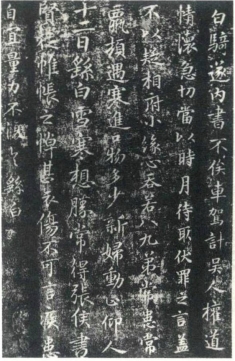 白騎遂內書不俟車駕計吳人權道
情懷急切當以時月待取伏罪之言蓋
不以疑相府小緣心吝若人九弟常患常
羸損遇寒進多少新婦動止仰人
十二日繇白雪寒想勝常得張侯書
賢從帷帳之悼甚哀傷不可言疾患
自宜量力不具繇白